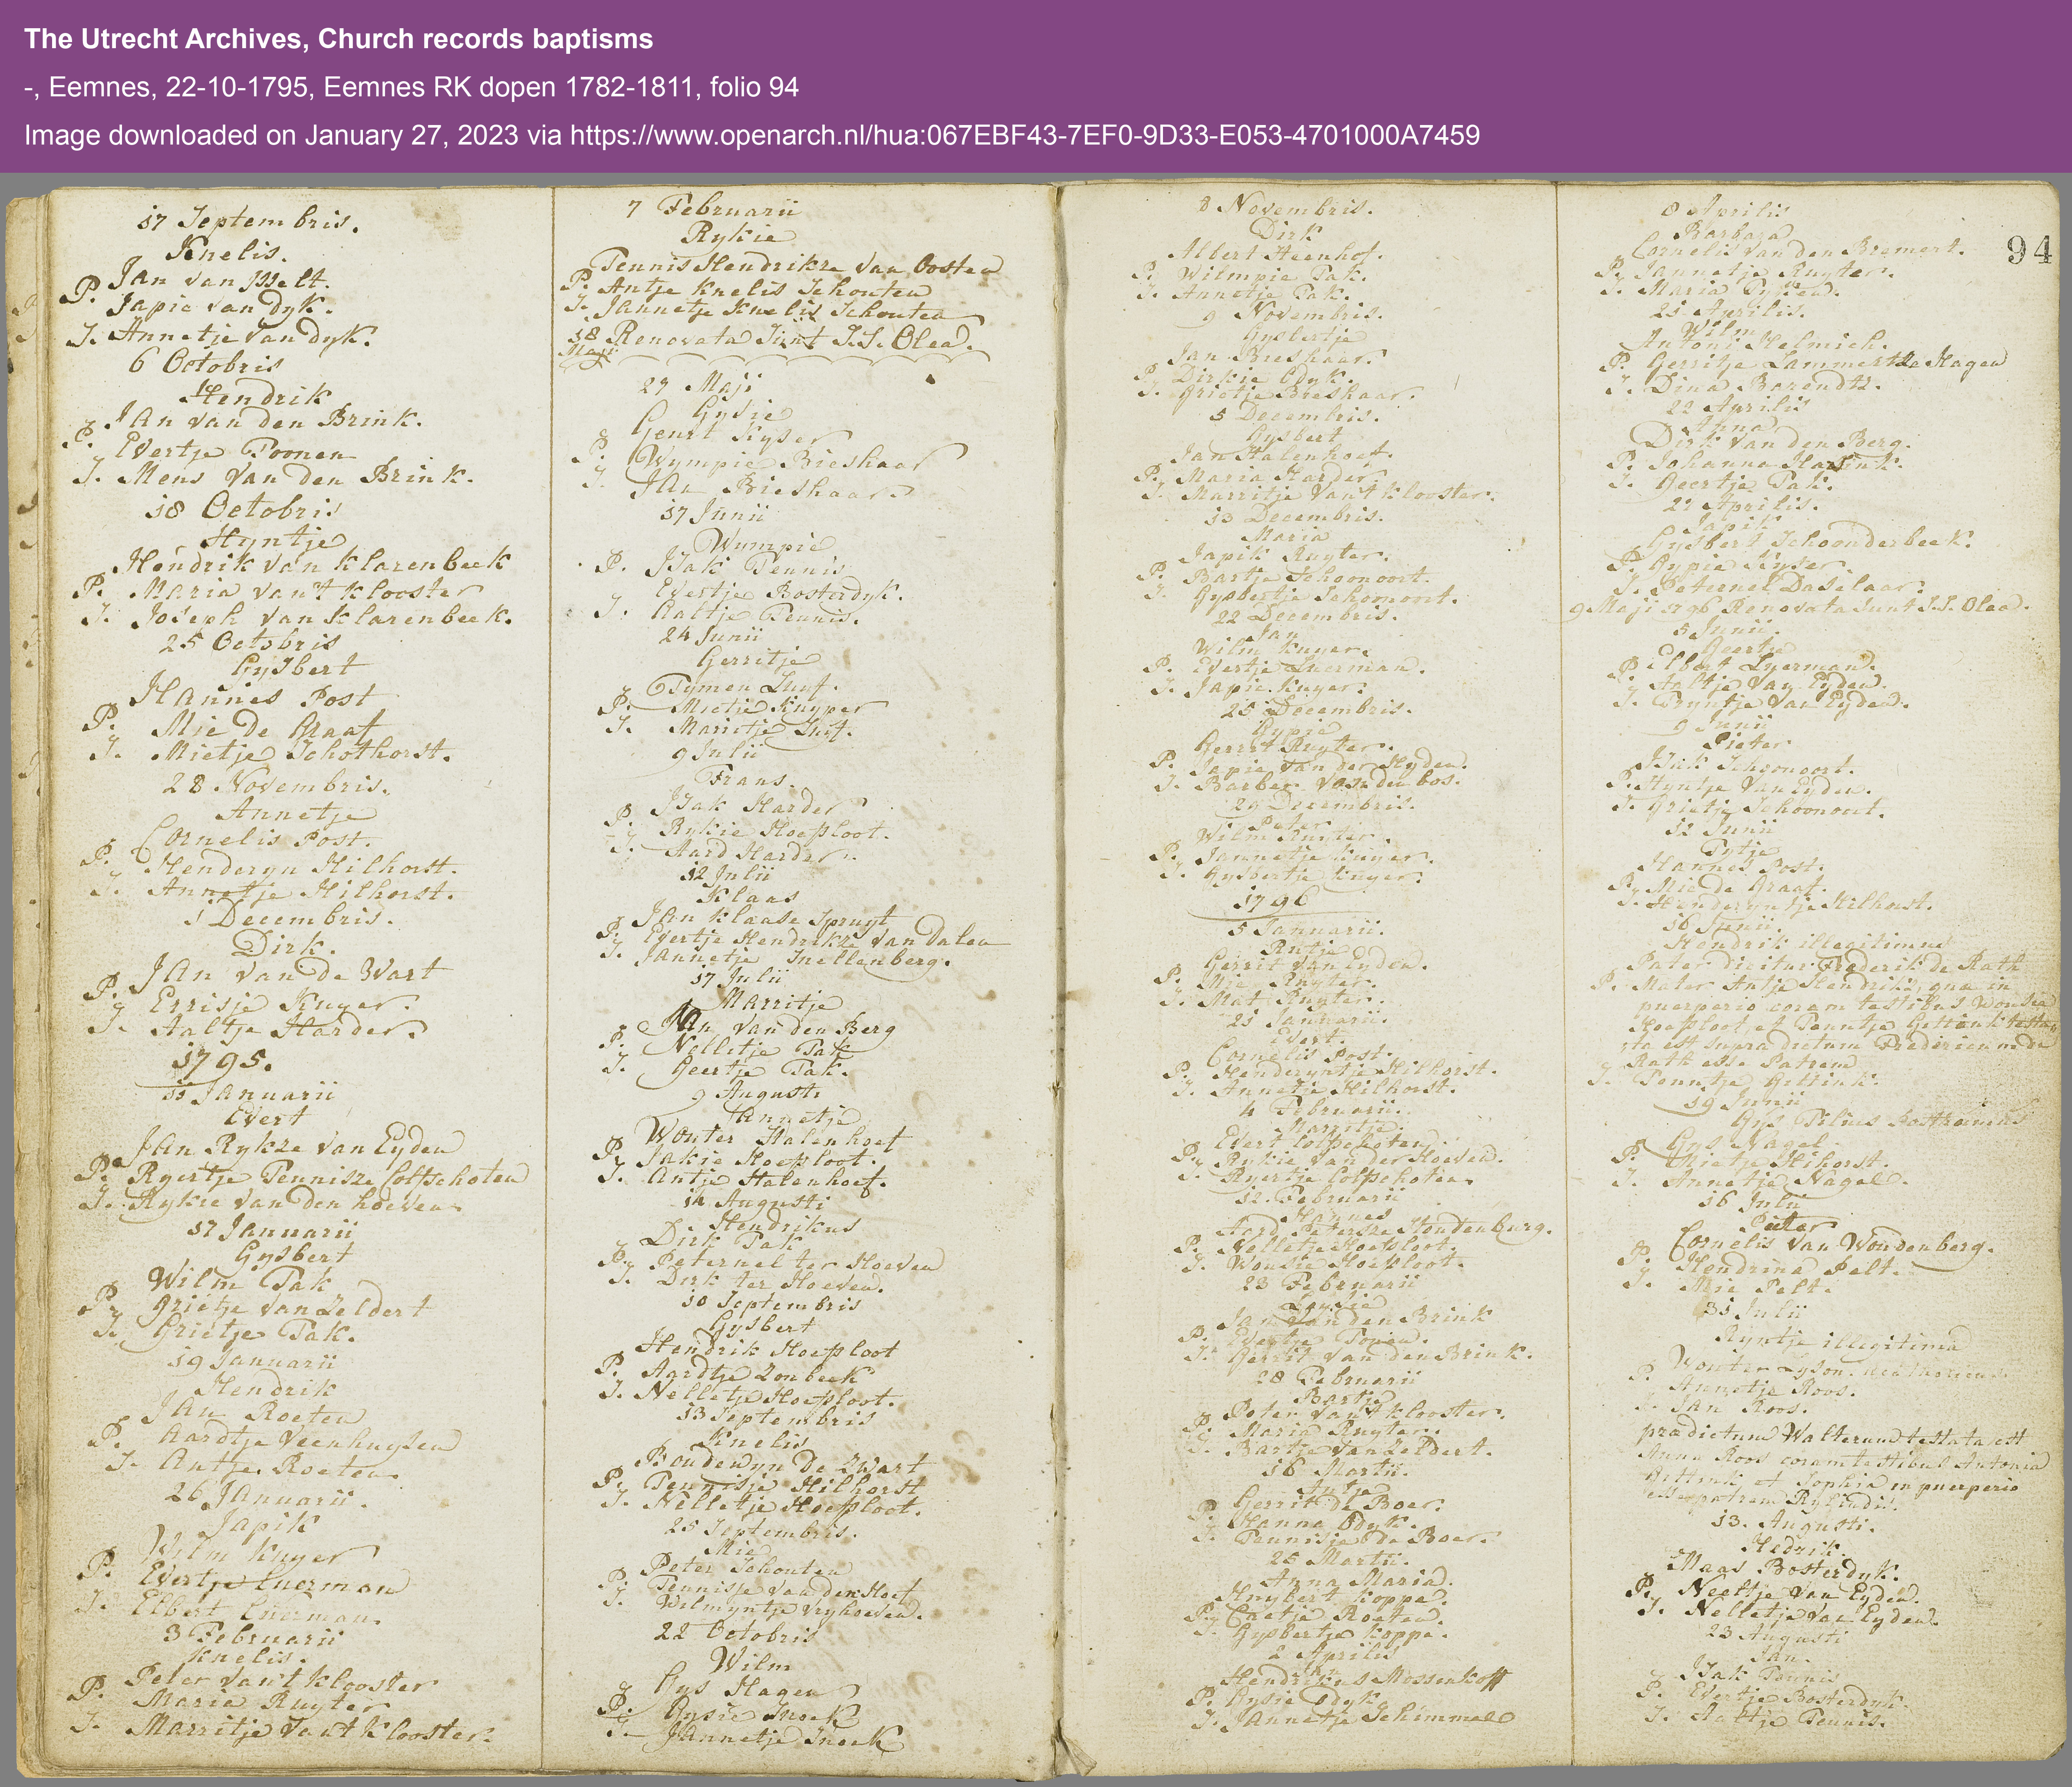 The Utrecht Archives, Church records baptisms
-, Eemnes, 22-10-1795, Eemnes RK dopen 1782-1811, folio 94
Image downloaded on January 27, 2023 via https://www.openarch.nl/hua:067EBF43-7EF0-9D33-E053-4701000A7459
17 Septembris.
Knelis.
Jan van Isselt.
P. Japie van dyk.
T. Annetje van dyk.
6 Octobris
Hendrik
Jan van den Brink.
P. Evertje Toonen
T. Mens van den Brink.
18 Octobris
Hyntje
Hendrik van Klarenbeek
P. Maria van't Klooster
T. Joseph van Klarenbeek.
25 Octobris
Gysbert
Hannes Post
P. Mie de Graaf
T. Mietje Schothorst.
28 Novembris.
Annetje
Cornelis Post.
P. Henderyn Hilhorst.
T. Annetje Hilhorst.
1 Decembris.
Dirk.
Jan van de Wart
P. Errisje Kuyer.
T. Aaltje Harder.
1795.
11 Januarii
Evert
Jan Rykze van Eyden
P. Ryertje Tennisze Colfschoten
T. Rykie van den hoeven
17 Januarii
Gysbert
Wilm Tak
P. Grietje van Zeldert
T. Grietje Tak.
19 Januarii
Hendrik
Jan Roeten
P. Aardtje Veenhuysen
T. Antje Roeten
26 Januarii.
Japik
Wilm Kuyer
P. Evertje Luerman
T. Elbert Luerman.
3 Februarii
Knelis.
Peter van't Klooster
P. Maria Ruyter
T. Marritje van't Klooster.
7 Februarii
Rykie
Tennis Hendrikze van Oosten
P. Antje Knelis Schouten
T. Jannetje Knelis Schouten
18 Maji Renovata Sunt S.S. Olea.
27 Maji
Gysie
Geurt Kyser
P. Wympie Bieshaar
T. Jan Bieshaar
17 Junii
Wympie
Isak Tennis
P. Evertje Bosterdyk.
T. Aaltje Tennis.
24 Junii
Gerritje
Tymen Luyf.
P. Mietje Kuyper
T. Marretje Luyf.
9 Julii
Frans.
Isak Harder
P. Rykie Hoefsloot.
T. Aard Harder.
12 Julii
Klaas
Jan Klaase Spruyt
P. Evertje Hendrikze van Dalen
T. Jannetje Snellenberg.
17 Julii
Marritje
Jan van den Berg
P. Nelletje Tak
T. Geertje Tak.
9 Augusti
Annetje
Wouter Halenhoef
P. Jakie Hoefsloot.
T. Antje Halenhoef.
14 Augusti
Hendrikus
Dirk Tak
P. Peternel ter Hoeven
T. Dirk ter Hoeven.
10 Septembris
Gysbert
Hendrik Hoefsloot
P. Aardtje Zonbeek
T. Nelletje Hoefsloot.
13 Septembris
Knelis
Boudewyn de Zwart
P. Tennisje Hilhorst
T. Nelletje Hoefsloot.
25 Septembris.
Mie
Peter Schouten
P. Tennisje van den Hoef
T. Wilmyntje Vryhoeven.
22 Octobris
Wilm
Gys Hagen
P. Gysie Snoek
T. Jannetje Snoek
94
8 Novembris.
Dirk
Albert Heenhof.
P. Wilmpie Tak.
T. Annetje Tak.
9 Novembris.
Gysbertje
Jan Bieshaar.
P. Dirkie Edyk.
T. Grietje Bieshaar.
5 Decembris.
Gysbert
Jan Halenhoef.
P. Maria Harder.
T. Marritje van't Klooster.
13 Decembris.
Maria
Japik Ruyter.
P. Bartje Schoonoort.
T. Gysbertje Schoonoort.
22 Decembris.
Jan
Wilm Kuyer.
P. Evertje Luerman.
T. Japie Kuyer.
25 Decembris.
Gypie
Gerrit Ruyter.
P. Japie van der Heyden.
T. Barber van den bos.
29 Decembris.
Peter
Wilm Ruyter.
P. Jannetje Kuyer.
T. Gysbertje Kuyer.
1796
5 Januarii.
Antje
Gerrit van Eyden.
P. Mie Ruyter.
T. Mat Ruyter.
25 Januarii.
Evert.
Cornelis Post.
P. Henderyntje Hilhorst.
T. Annetje Hilhorst.
4 Februarii.
Marritje.
Evert Colfschoten.
P. Rykie van der Hoeven.
T. Ryertje Colfschoten.
12 Februarii
Hannes
Aard Peterze Houtenburg.
P. Nelletje Hoefsloot.
T. Wousie Hoefsloot.
23 Februarii
Jan van den Brink
P. Evertje Tonen.
T. Gerrit van den Brink.
28 Februarii
Bartje
Peter van't Klooster.
P. Maria Ruyter.
T. Bartje van Zeldert.
16 Martii.
Antje
Gerrit de Boer.
P. Hanna Edyk.
T. Tennisje de Boer.
25 Martii.
Anna Maria.
Huybert Koppe.
P. Caetje Roeten.
T. Gysbertje Koppe.
2 Aprilis
Jan
Hendrikus Mossenkoff
P. Gysie Edyk
T. Jannetje Schimmel
8 Aprilis
Barbara
Cornelis van den Bremert.
P. Jannetje Ruyter.
T. Maria Tyssen.
21 Aprilis.
Wilm
Antoni Helmich.
P. Gerritje Lammertze Hagen
T. Dina Barendtz.
22 Aprilis
Anna
Dirk van den Berg.
P. Johanna Hartink.
T. Geertje Tak.
27 Aprilis.
Japik
Gysbert Schoonderbeek.
P. Gypie Kyser.
T. Peternel Daselaar.
9 Maji 1796 Renovata Sunt S.S. Olea.
5 Junii.
Geertje
Elbert Luerman.
P. Aaltje van Eyden.
T. Tryntje van Eyden.
9 Junii
Pieter
Isak Schoonoort.
P. Hyntje van Eyden.
T. Grietje Schoonoort.
12 Junii
Tytje
Hannes Post.
P. Mie de Graaf.
T. Henderyntje Hilhorst.
16 Junii.
Hendrik illegitimus
Pater dicitur Frederik de Rath
P. Mater Antje Hendriks, quae in
puerperio coram testibus Wousie
Hoefsloot et Tenntje Gettink testa
ta est supra dictum Fredericum de
Rath esse Patrem
T. Tenntje Gettink.
19 Junii
Gys
Gys Nagel
P. Mietje Hilhorst.
T. Annetje Nagel.
16 Julii
Pieter
Cornelis van Woudenberg.
P. Hendrina Pelt.
T. Mie Pelt.
31 Julii
Ryntje illegitima
Wouter
P. Annetje Roos.
T. Jan Roos.
praedictum Walterum testata est
Anna Roos coram testibus Antonia
Gettink et Sophia in puerperio
esse patrem
13. Augusti.
Hedrik.
Maas Bosterdyk.
P. Neeltje van Eyden.
T. Nelletje van Eyden.
23 Augusti
Jan.
Isak Tennis
P. Evertje Bosterdyk.
T. Aaltje Tennis.